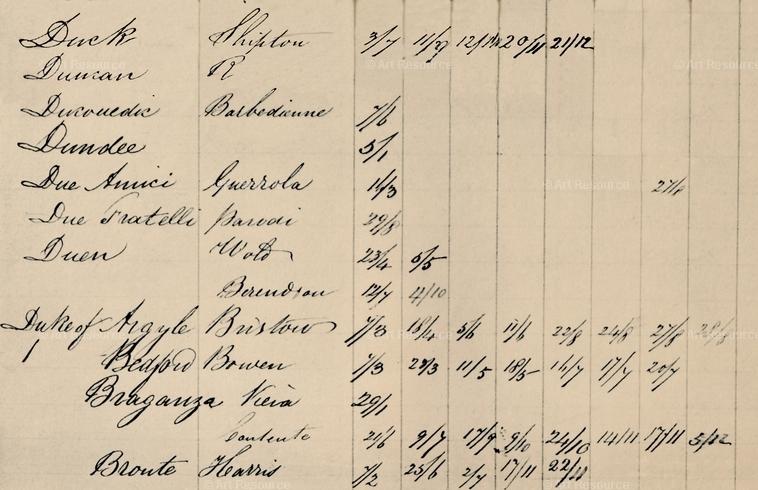 Duck Shipton 3/7 11/7 12/11 20/11 21/12
Duncan R
Ducouedic Barbedienne 7/6
Dundee 5/1
Due Amici Guerrola 11/3 27/4
Due Fratelli Parodi 29/8
Duen Wold 23/4 5/5
Berendson 12/7 4/10
Duke of Argyle Bristow 7/3 18/4 5/6 11/6 22/8 24/8 27/8 28/8
Bedford Bowen 7/3 23/3 11/5 18/5 16/7 17/7 20/7
Braganza Vieira 29/1
Contente 21/6 9/7 17/9 9/10 24/10 14/11 17/11 5/12
Bronte Harris 7/2 25/6 2/7 17/11 22/11